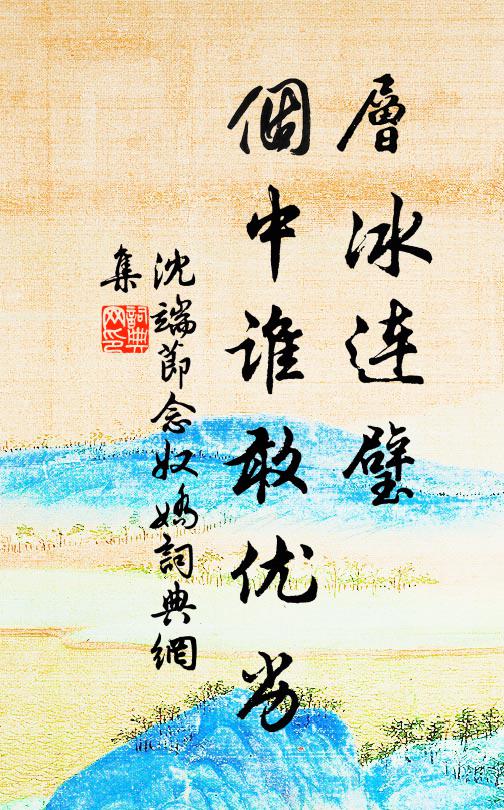 層冰连璧
個中谁敢优劣
沈端節念奴嬌詞典網
集
詞典
网印